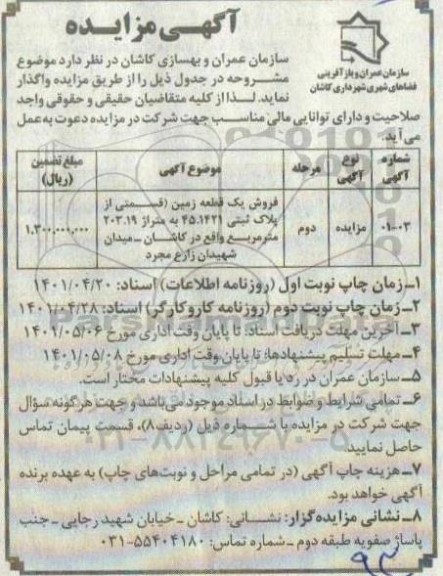 آگهی مزایده
سازمان عمران و بازآفرینی
فضاهای شهری شهرداری کاشان
سازمان عمران و بهسازی کاشان در نظر دارد موضوع
مشروحه در جدول ذیل را از طریق مزایده واگذار
نماید. لذا از کلیه متقاضیان حقیقی و حقوقی واجد
صلاحیت و دارای توانایی مالی مناسب جهت شرکت در مزایده دعوت به عمل
می‌آید.
شماره آگهی | نوع آگهی | مرحله | موضوع آگهی | مبلغ تضمین (ریال)
۰۱-۰۳ | مزایده | دوم | فروش یک قطعه زمین (قسمتی از پلاک ثبتی ۴۵.۱۴۲۱ به متراژ ۲۰۳.۱۹ مترمربع واقع در کاشان ـ میدان شهیدان زارع مجرد | ۱.۳۰۰,۰۰۰,۰۰۰
۱ـ زمان چاپ نوبت اول (روزنامه اطلاعات) اسناد: ۱۴۰۱/۰۴/۲۰
۲ـ زمان چاپ نوبت دوم (روزنامه کاروکارگر) اسناد: ۱۴۰۱/۰۴/۲۸
۳ـ آخرین مهلت دریافت اسناد: تا پایان وقت اداری مورخ ۱۴۰۱/۰۵/۰۶
۴ـ مهلت تسلیم پیشنهادها: تا پایان وقت اداری مورخ ۱۴۰۱/۰۵/۰۸
۵ـ سازمان عمران در رد یا قبول کلیه پیشنهادات مختار است.
۶ـ تمامی شرایط و ضوابط در اسناد موجود می‌باشد و جهت هرگونه سؤال
جهت شرکت در مزایده با شماره ذیل (ردیف۸)، قسمت پیمان تماس
حاصل نمایید.
۷ـ هزینه چاپ آگهی (در تمامی مراحل و نوبت‌های چاپ) به عهده برنده
آگهی خواهد بود.
۸ـ نشانی مزایده‌گزار: نشانی: کاشان ـ خیابان شهید رجایی ـ جنب
پاساژ صفویه طبقه دوم ـ شماره تماس: ۵۵۴۰۴۱۸۰-۰۳۱
۰۲۱-۸۸۳۴۹۶۷۰-۵